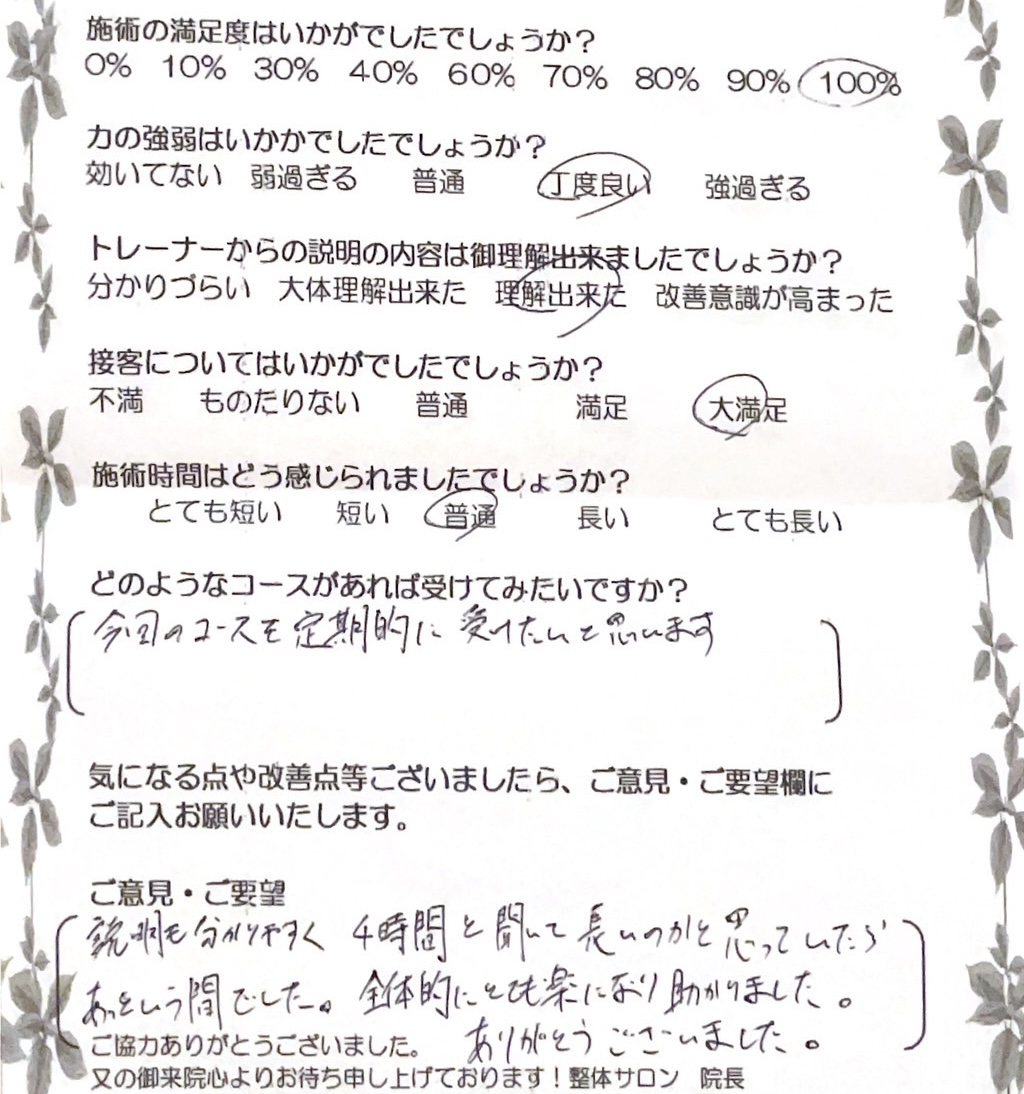 施術の満足度はいかがでしたでしょうか？
0% 10% 30% 40% 60% 70% 80% 90% 100%
力の強弱はいかかでしたでしょうか？
効いてない 弱過ぎる 普通 丁度良い 強過ぎる
トレーナーからの説明の内容は御理解出来ましたでしょうか？
分かりづらい 大体理解出来た 理解出来た 改善意識が高まった
接客についてはいかがでしたでしょうか？
不満 ものたりない 普通 満足 大満足
施術時間はどう感じられましたでしょうか？
とても短い 短い 普通 長い とても長い
どのようなコースがあれば受けてみたいですか？
今回のコースを定期的に受けたいと思います
気になる点や改善点等ございましたら、ご意見・ご要望欄に
ご記入お願いいたします。
ご意見・ご要望
説明も分かりやすく 4時間と聞いて長いのかと思っていたら
あっという間でした。全体的にとても楽になり助かりました。
ありがとうございました。
ご協力ありがとうございました。
又の御来院心よりお待ち申し上げております！整体サロン 院長